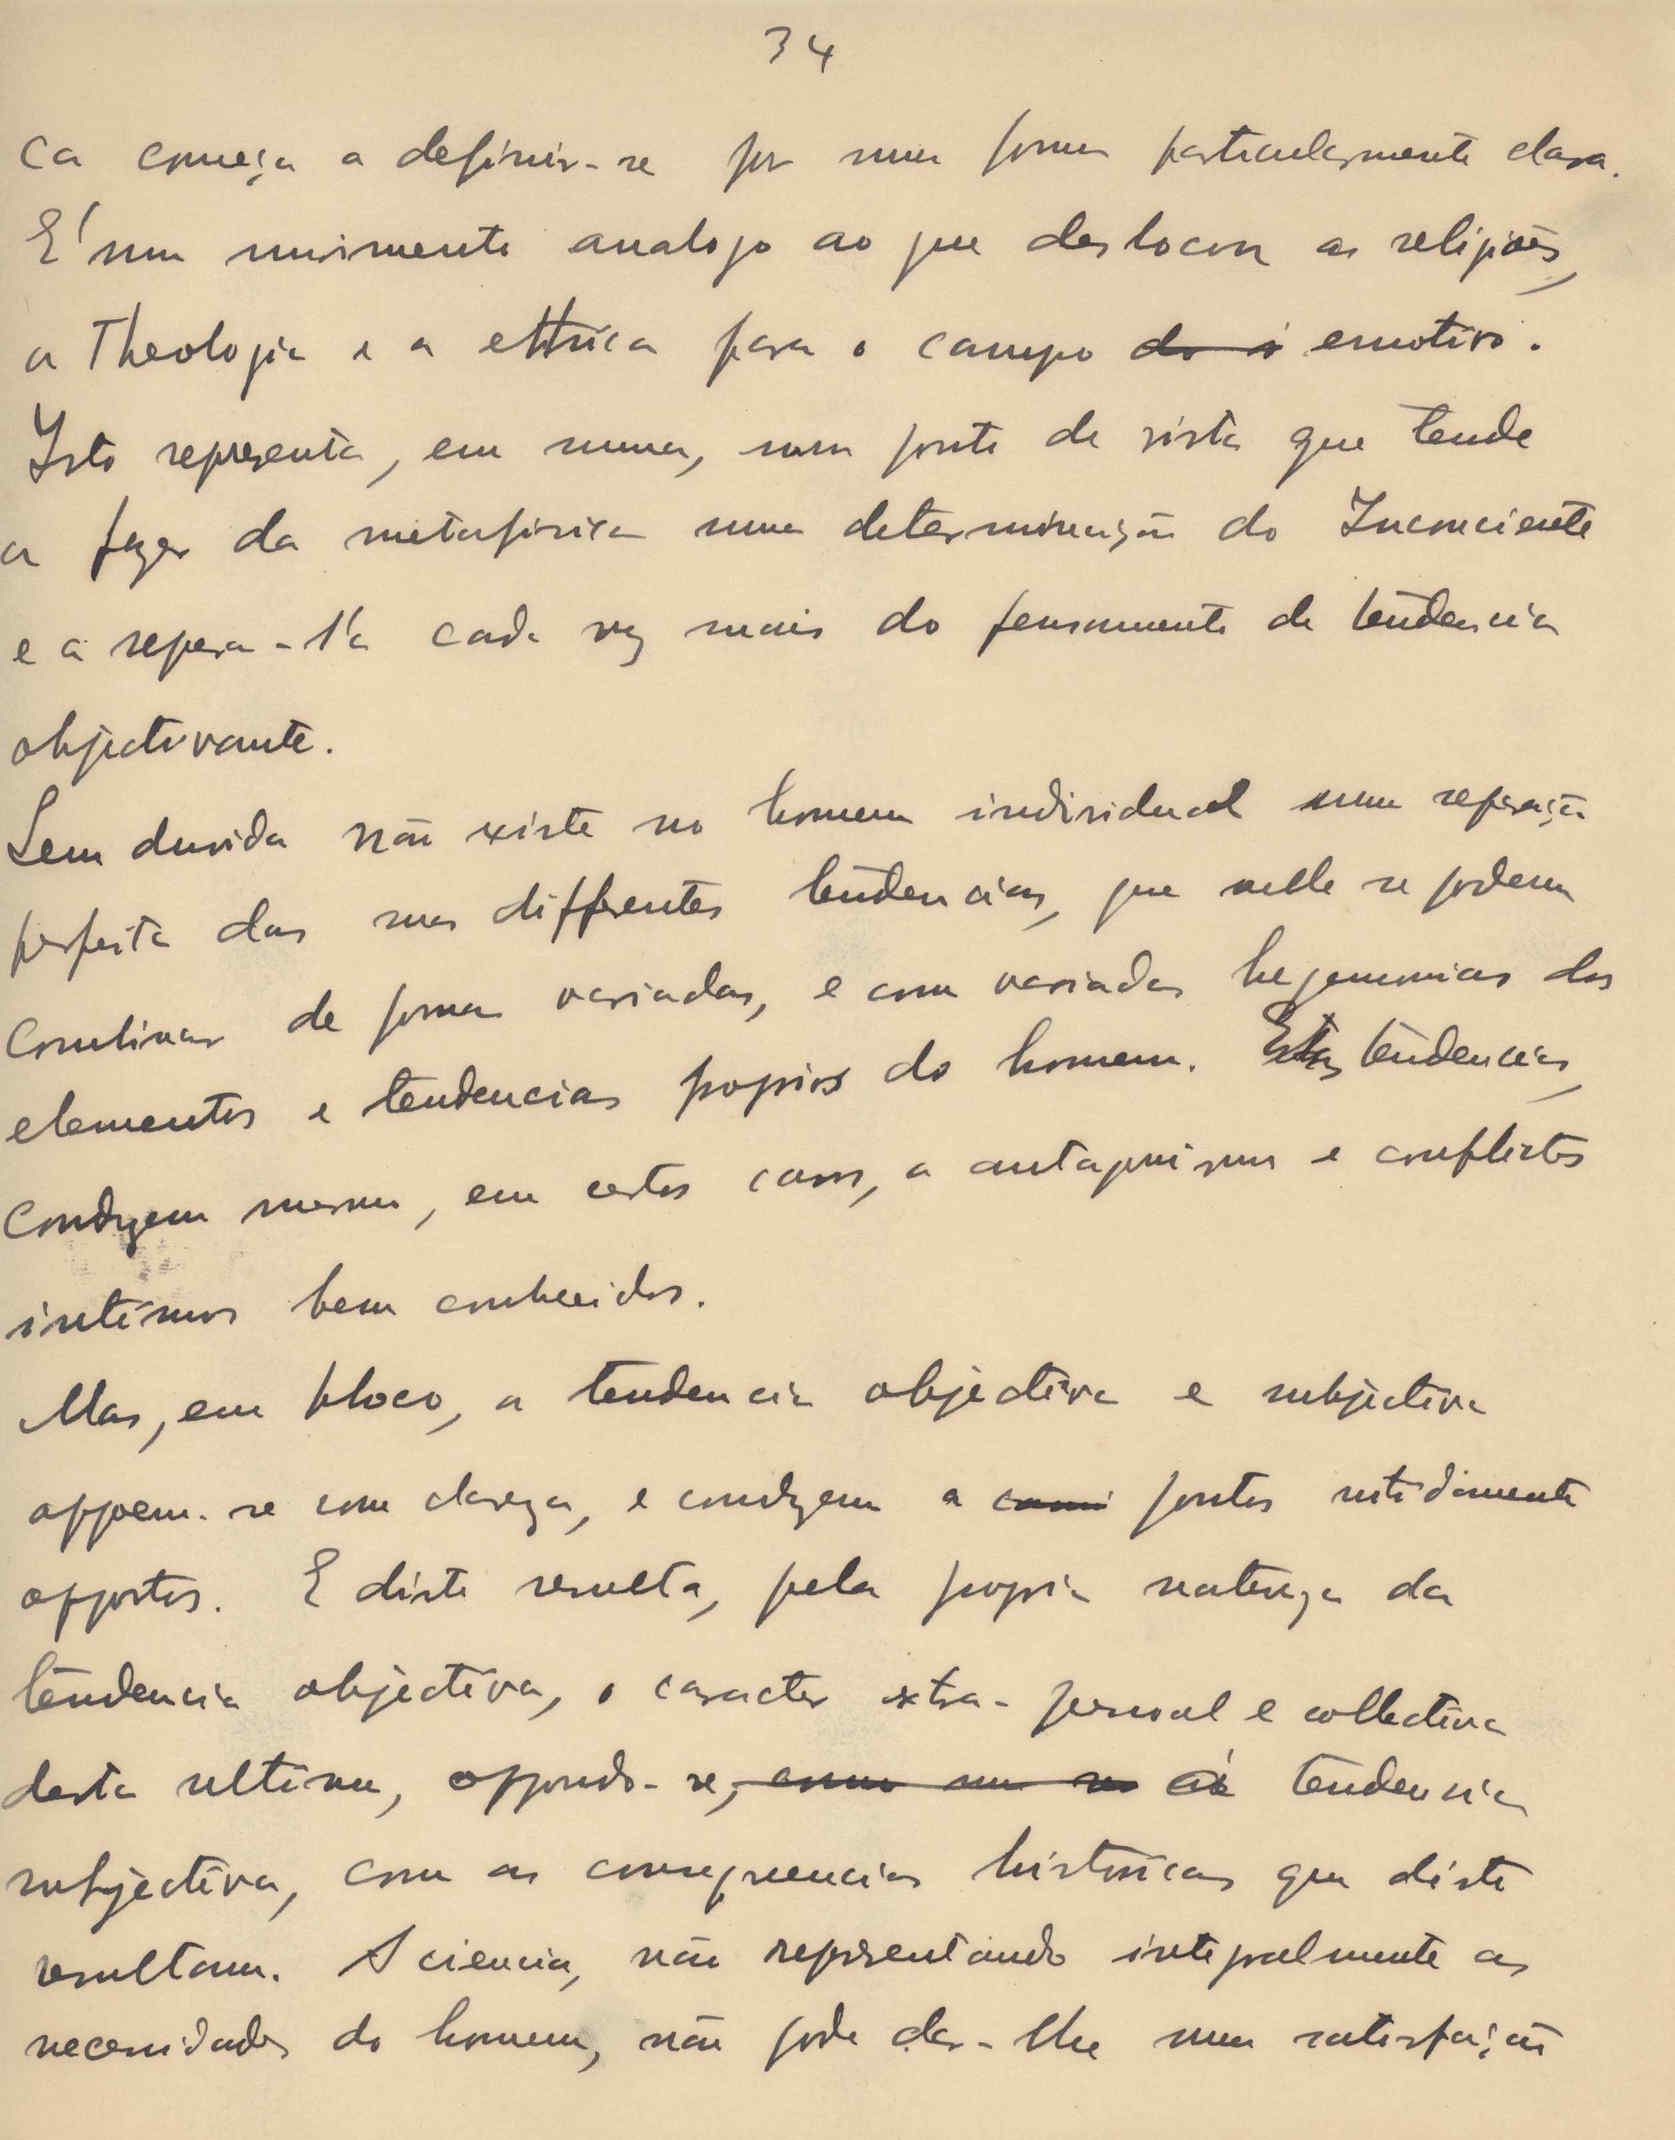 34
ca começa a definir-se por uma forma particularmente clara.
E' um movimento analogo ao que deslocou as religiões,
a Theologia e a ethica para o campo do é emotivo.
Isto representa, em suma, um ponto de vista que tende
a fazer da metafisica uma determinação do Inconciente
e a separa-l'a cada vez mais do pensamento de tendencia
objectivante.
Sem duvida não existe no homem individual uma separação
perfeita das suas differentes tendencias, que nelle se podem
combinar de forma variadas, e com variadas hegemonias dos
elementos e tendencias proprios do homem. Estas tendencias,
condizem mesmo, em certos casos, a antagonismos e conflictos
intimos bem conhecidos.
Mas, em bloco, a tendencia objectiva e subjectiva
oppoem-se com clareza, e condizem a pontos nitidamente
oppostos. E disto resulta, pela propria natureza da
tendencia objectiva, o caracter extra-pessoal e collectivo
desta ultima, oppondo-se, como um á tendencia
subjectiva, com as consequencias historicas que disto
resultam. A sciencia, não representando integralmente as
necessidades do homem, não pode dar-lhe uma satisfação